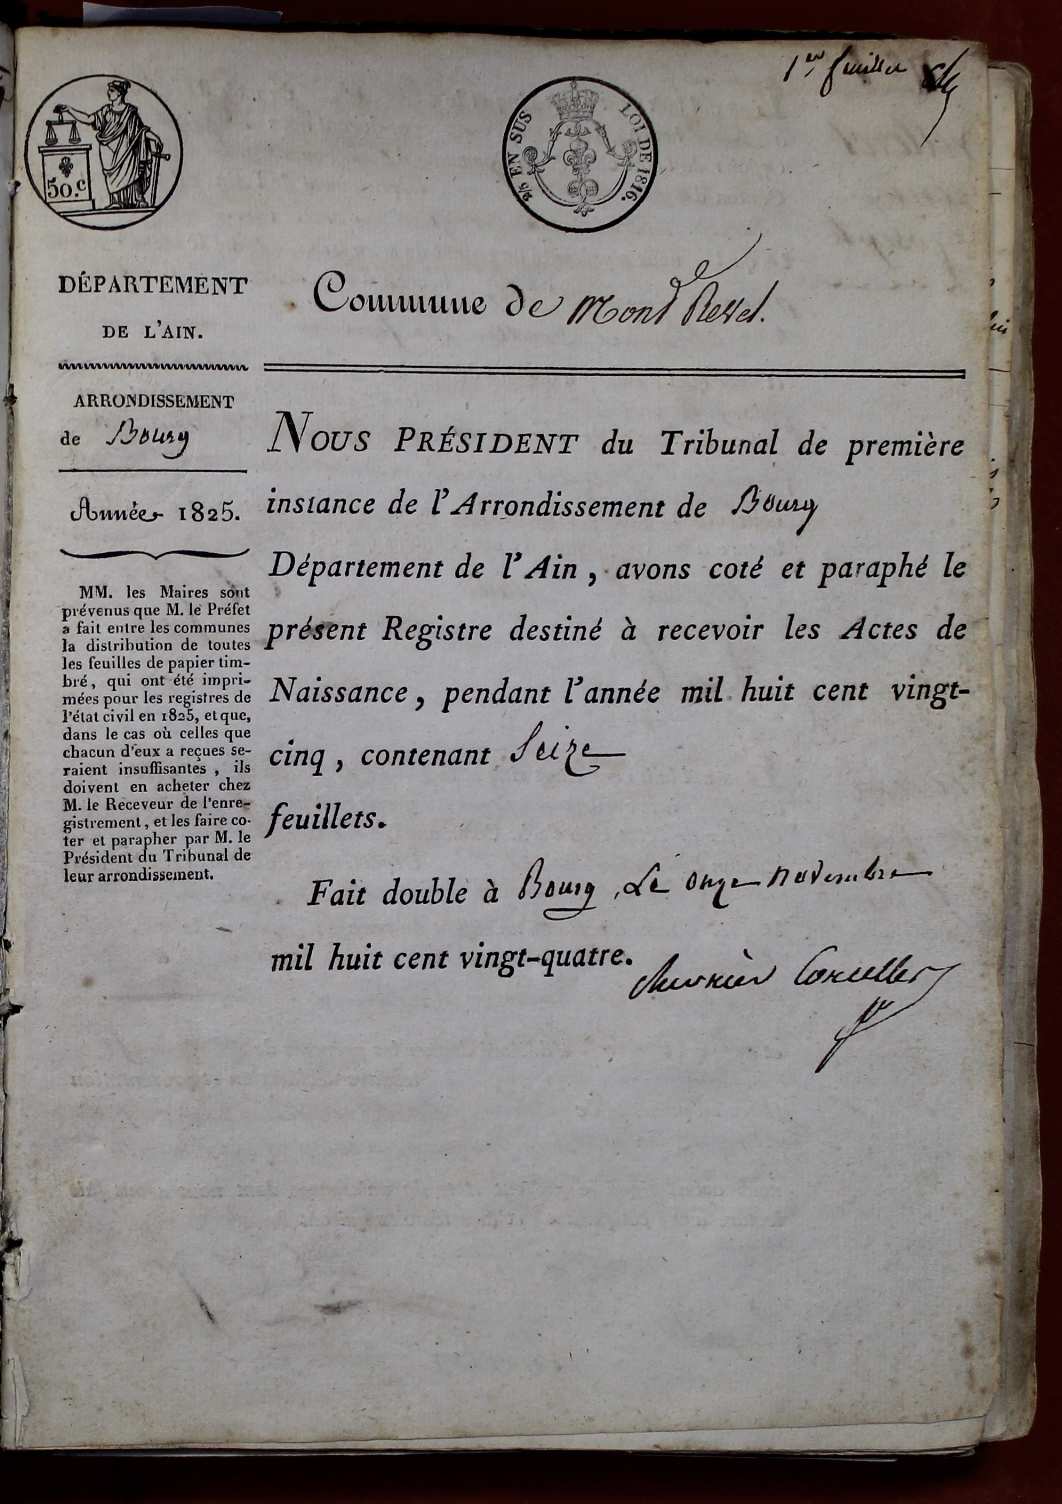 1er feuillet
50.c
2/5 EN SUS
LOI DE 1816.
DÉPARTEMENT
DE L'AIN.
Commune de Mont Revel.
ARRONDISSEMENT
de Bourg
Année 1825.
MM. les Maires sont
prévenus que M. le Préfet
a fait entre les communes
la distribution de toutes
les feuilles de papier tim-
bré, qui ont été impri-
mées pour les registres de
l'état civil en 1825, et que,
dans le cas où celles que
chacun d'eux a reçues se-
raient insuffisantes, ils
doivent en acheter chez
M. le Receveur de l'enre-
gistrement, et les faire co-
ter et parapher par M. le
Président du Tribunal de
leur arrondissement.
NOUS PRÉSIDENT du Tribunal de première
instance de l'Arrondissement de Bourg
Département de l'Ain, avons coté et paraphé le
présent Registre destiné à recevoir les Actes de
Naissance, pendant l'année mil huit cent vingt-
cinq, contenant Seize
feuillets.
Fait double à Bourg, Le onze novembre
mil huit cent vingt-quatre.